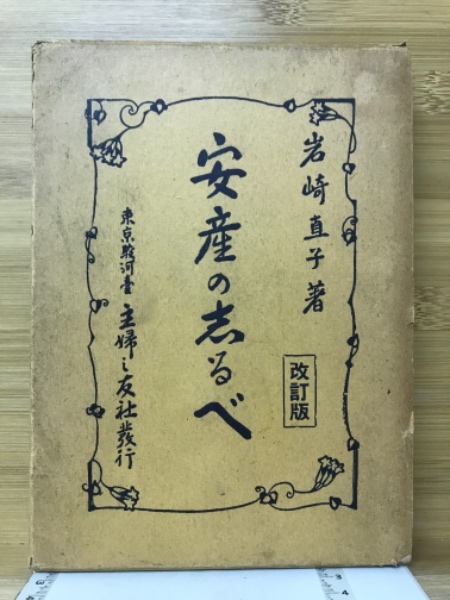 岩崎直子著
安産の志るべ
改訂版
東京駿河臺 主婦之友社發行
3 4